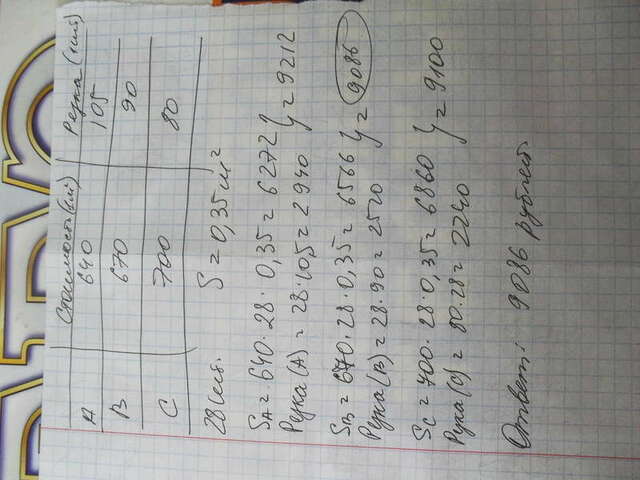 Стоимость (ст) Резка (1 шт)
A 640 105
B 670 90
C 700 80
28 шт. S = 0,35 м²
SA = 640 · 28 · 0,35 = 6272
Резка (A) = 28 · 10,5 = 2940 } = 9212
SB = 670 · 28 · 0,35 = 6566
Резка (B) = 28 · 90 = 2520 } = 9086
SC = 700 · 28 · 0,35 = 6860
Резка (C) = 80 · 28 = 2240 } = 9100
Ответ: 9086 рублей